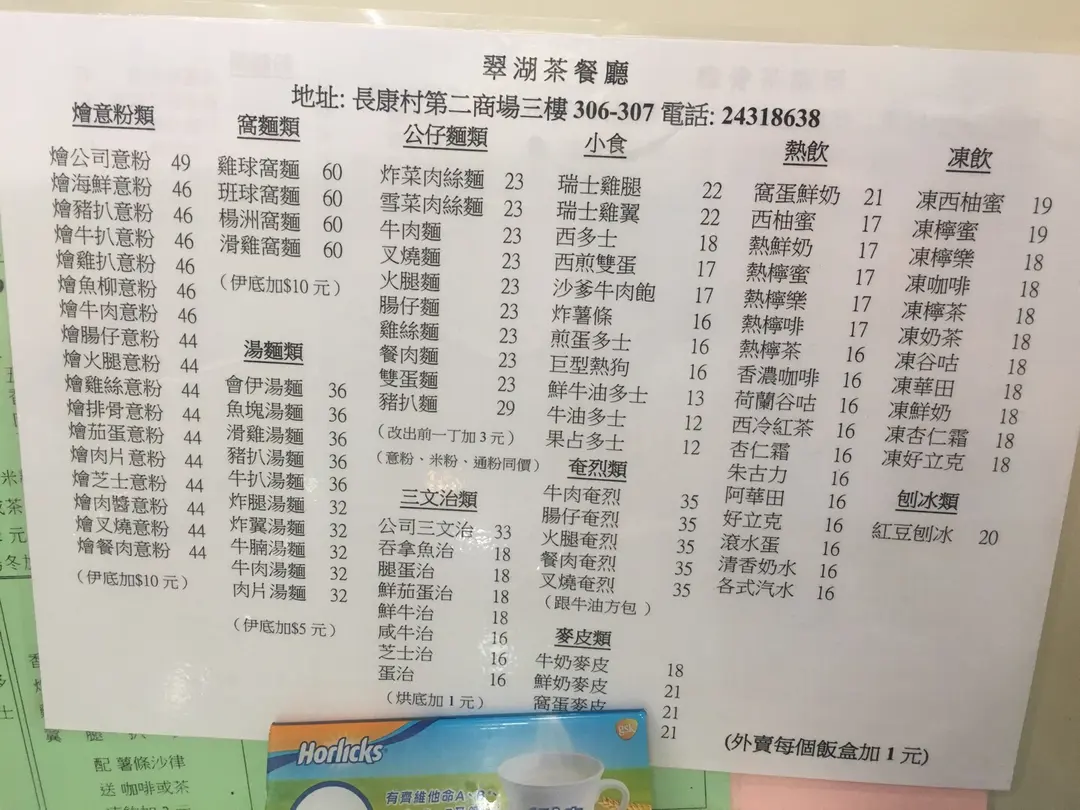 翠湖茶餐廳
地址: 長康村第二商場三樓 306-307 電話: 24318638
燴意粉類
燴公司意粉 49
燴海鮮意粉 46
燴豬扒意粉 46
燴牛扒意粉 46
燴雞扒意粉 46
燴魚柳意粉 46
燴牛肉意粉 46
燴腸仔意粉 44
燴火腿意粉 44
燴雞絲意粉 44
燴排骨意粉 44
燴茄蛋意粉 44
燴肉片意粉 44
燴芝士意粉 44
燴肉醬意粉 44
燴叉燒意粉 44
燴餐肉意粉 44
（伊底加$10 元）
窩麵類
雞球窩麵 60
班球窩麵 60
楊洲窩麵 60
滑雞窩麵 60
（伊底加$10 元）
湯麵類
會伊湯麵 36
魚塊湯麵 36
滑雞湯麵 36
豬扒湯麵 36
牛扒湯麵 36
炸腿湯麵 32
炸翼湯麵 32
牛腩湯麵 32
牛肉湯麵 32
肉片湯麵 32
（伊底加$5 元）
公仔麵類
炸菜肉絲麵 23
雪菜肉絲麵 23
牛肉麵 23
叉燒麵 23
火腿麵 23
腸仔麵 23
雞絲麵 23
餐肉麵 23
雙蛋麵 23
豬扒麵 29
（改出前一丁加 3 元）
（意粉、米粉、通粉同價）
三文治類
公司三文治 33
吞拿魚治 18
腿蛋治 18
鮮茄蛋治 18
鮮牛治 18
咸牛治 16
芝士治 16
蛋治 16
（烘底加 1 元）
小食
瑞士雞腿 22
瑞士雞翼 22
西多士 18
西煎雙蛋 17
沙爹牛肉飽 17
炸薯條 16
煎蛋多士 16
巨型熱狗 16
鮮牛油多士 13
牛油多士 12
果占多士 12
奄烈類
牛肉奄烈 35
腸仔奄烈 35
火腿奄烈 35
餐肉奄烈 35
叉燒奄烈 35
（跟牛油方包）
麥皮類
牛奶麥皮 18
鮮奶麥皮 21
窩蛋麥皮 21
21
熱飲
窩蛋鮮奶 21
西柚蜜 17
熱鮮奶 17
熱檸蜜 17
熱檸樂 17
熱檸啡 17
熱檸茶 16
香濃咖啡 16
荷蘭谷咕 16
西冷紅茶 16
杏仁霜 16
朱古力 16
阿華田 16
好立克 16
滾水蛋 16
清香奶水 16
各式汽水 16
凍飲
凍西柚蜜 19
凍檸蜜 19
凍檸樂 18
凍咖啡 18
凍檸茶 18
凍奶茶 18
凍谷咕 18
凍華田 18
凍鮮奶 18
凍杏仁霜 18
凍好立克 18
刨冰類
紅豆刨冰 20
(外賣每個飯盒加 1 元)
Horlicks
gsk
有齊維他命A、B
配 薯條沙律
送 咖啡或茶